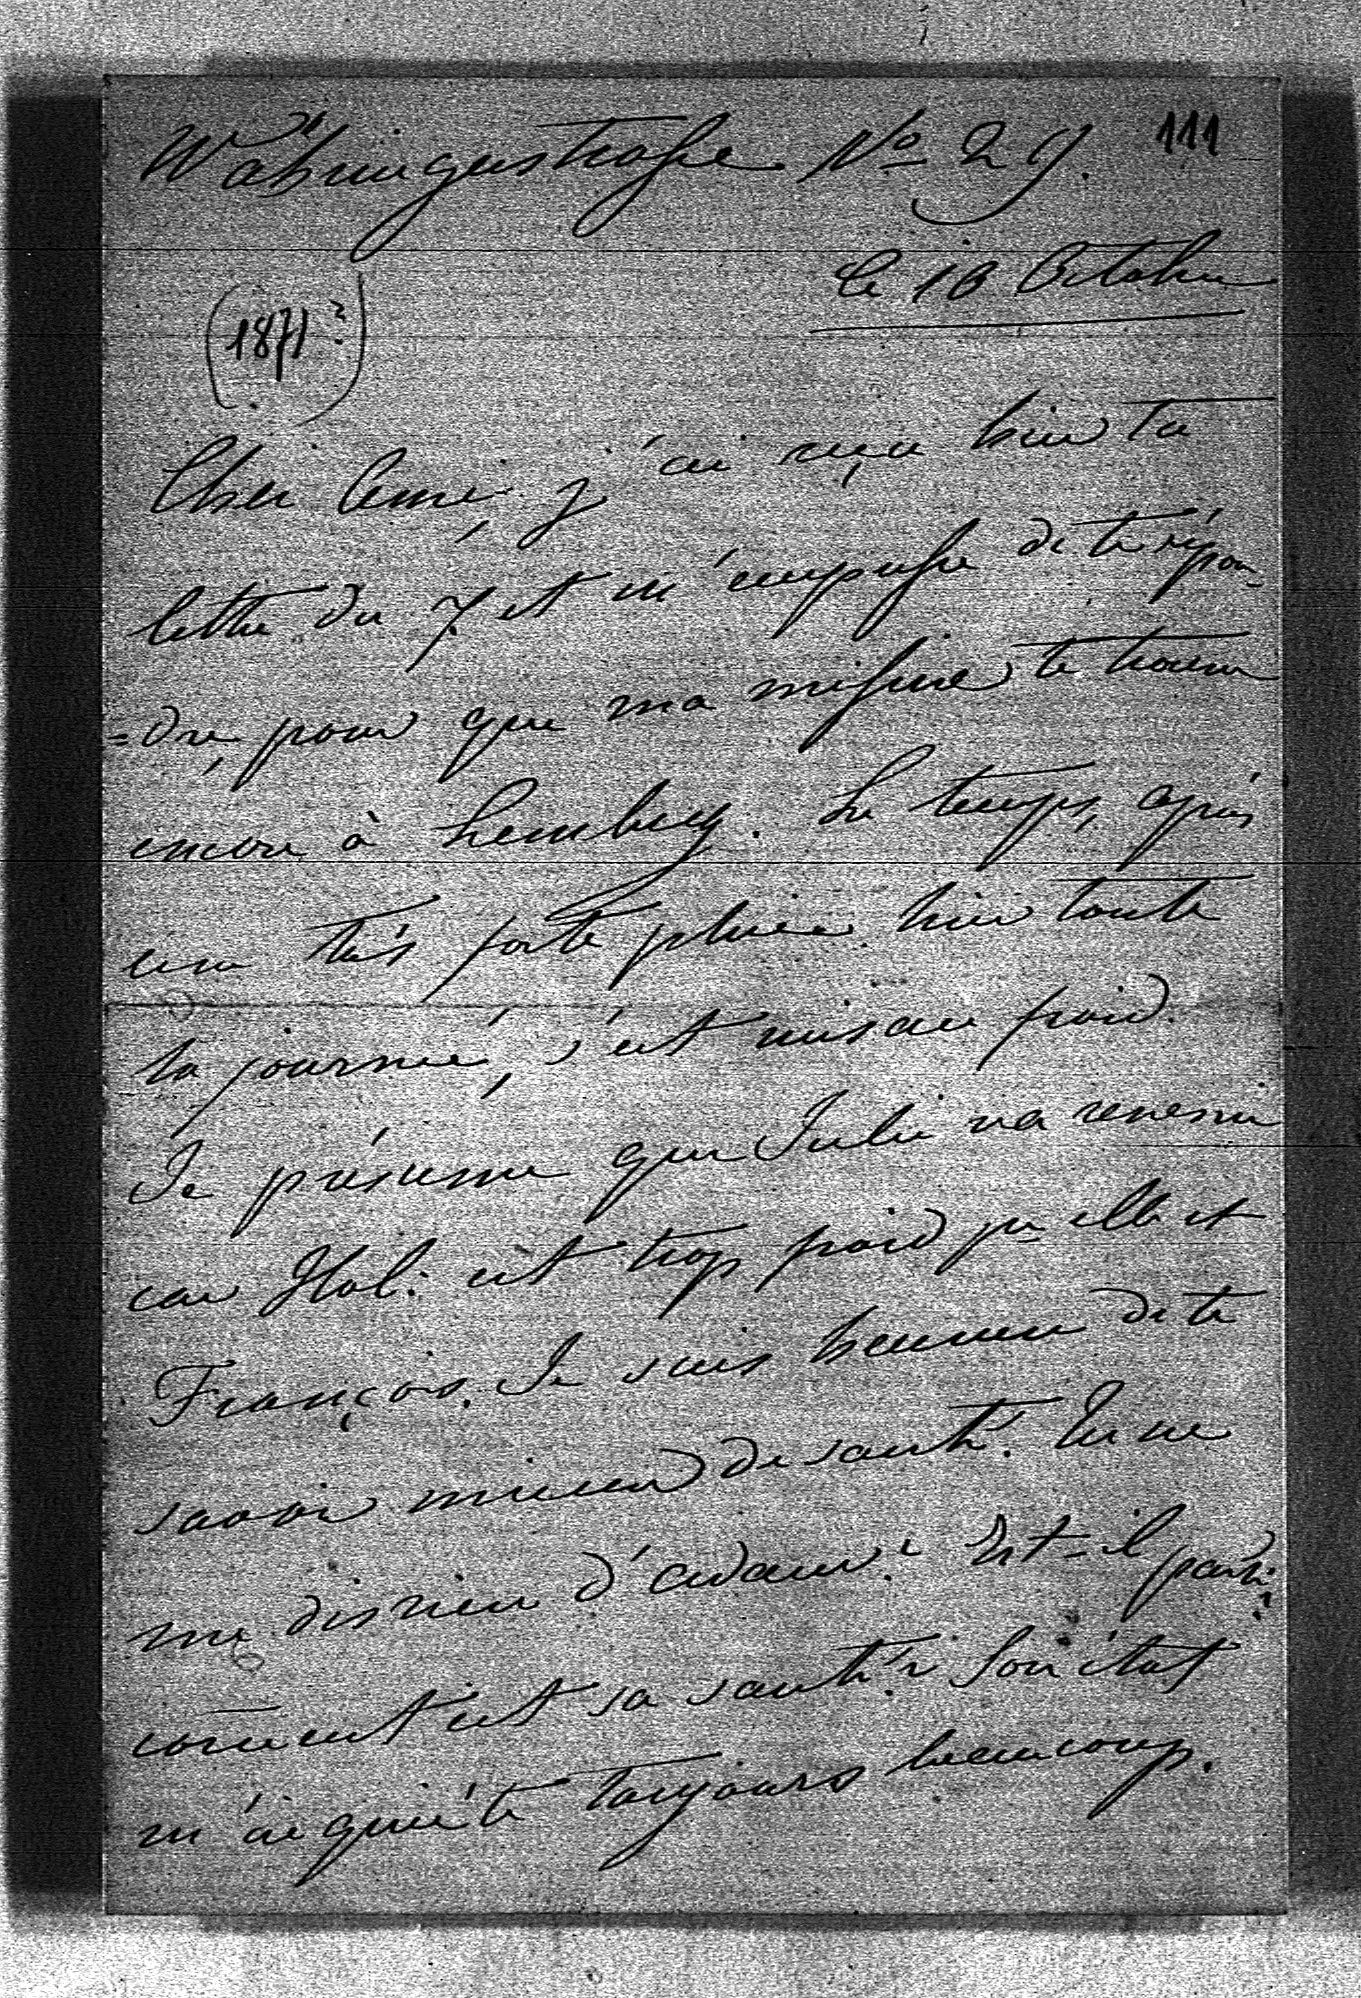 Währingerstrasse No 29.
111
Le 10 Octobre
(1871?)
Cher Ami, j'ai reçu hier ta
lettre du 7 et m'empresse de te répon-
=dre, pour que ma missive te trouve
encore à Lemberg. Le temps, après
une très forte pluie hier toute
la journée, s'est mis au froid.
Je présume que Julie va revenir
car Hol. est trop froid pr elle et
François. Je suis heureux de te
savoir mieux de santé. Tu ne
me dis rien d'Adam? Est-il parti?
coment est sa santé? Son état
m'inquiète toujours beaucoup.